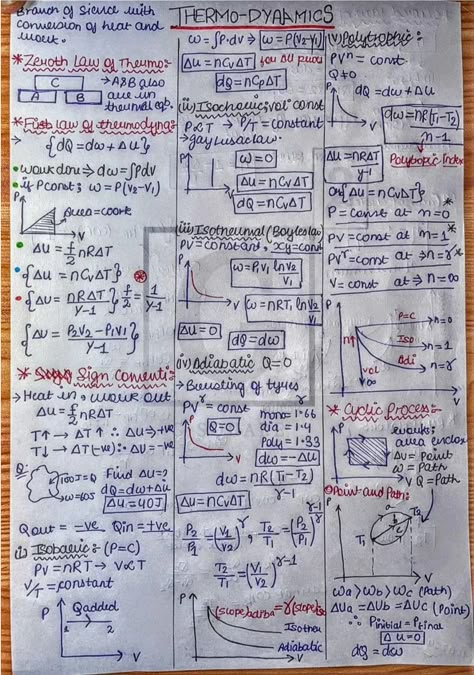 THERMO-DYNAMICS
Branch of Science with
conversion of heat and
work.
*Zeroth Law of Thermo:
C
A B
→ A&B also
are in
thermal eq.
*First law of thermodyna:
→ {dQ = dω + Δu}
• work done → dω = ∫Pdv
• if P const; ω = P(V2-V1)
P
Area = work
V
• Δu = f/2 nRΔT
• {Δu = nCvΔT}
• {Δu = nRΔT/γ-1} f/2 = 1/γ-1
{Δu = P2V2 - P1V1/γ-1}
* Sign Conventi:
→ Heat in, work out
Δu = f/2 nRΔT
T↑ → ΔT↑ ∴ Δu → +ve
T↓ → ΔT(-ve) ∴ Δu = -ve
Q:
100J = Q
ω = 60J
Find Δu = ?
dQ = dω + Δu
Δu = 40J
Qout = -ve Qin = +ve
(i) Isobaric: (P=C)
PV = nRT → V∝T
V/T = constant
P
Q added
1 2
V
ω = ∫P.dv ⇒ ω = P(V2-V1)
Δu = nCvΔT
dQ = nCpΔT
(ii) Isochoric: vol const
P∝T → P/T = constant
→ gay lusac law.
P
V
ω = 0
Δu = nCvΔT
dQ = nCvΔT
(iii) Isothermal (Boyles law
PV = constant, xy = cons
P
V
ω = P1V1 ln V2/V1
ω = nRT, ln V2/V1
Δu = 0
dQ = dω
(iv) Adiabatic Q=0
→ Bursting of tyres
PVγ = const
Q = 0
γ
mono = 1.66
dia = 1.4
poly = 1.33
P
V
dω = -Δu
dω = nR(T1-T2)/γ-1
Δu = nCvΔT
P2/P1 = (V1/V2)γ, T2/T1 = (P2/P1)γ-1/γ
T2/T1 = (V1/V2)γ-1
P
(slope)adiba = γ(slope)iso
Isother
Adiabatic
V
(v) Polytrophic:
PVn = const
Q ≠ 0
P
V
dQ = dω + Δu
dω = nR(T1-T2)/n-1
Polytropic Index
Δu = nRΔT/γ-1
or {Δu = nCvΔT}
P = const at n = 0*
PV = const at n = 1*
PVγ = const at n = γ*
V = const at n = ∞
P
P=C → n=0
ISO → n=1
Adi → n=γ
n↑
vol
∞
V
* Cyclic Process:
P
V
work:
area enclos
Δu = point
ω = Path
Q = Path
Point and Path:
P
T1
T2
a
b
c
V
ωa > ωb > ωc (Path)
ΔUa = ΔUb = ΔUc (Point)
∴ Pinitial = Pfinal
Δu = 0
dQ = dω